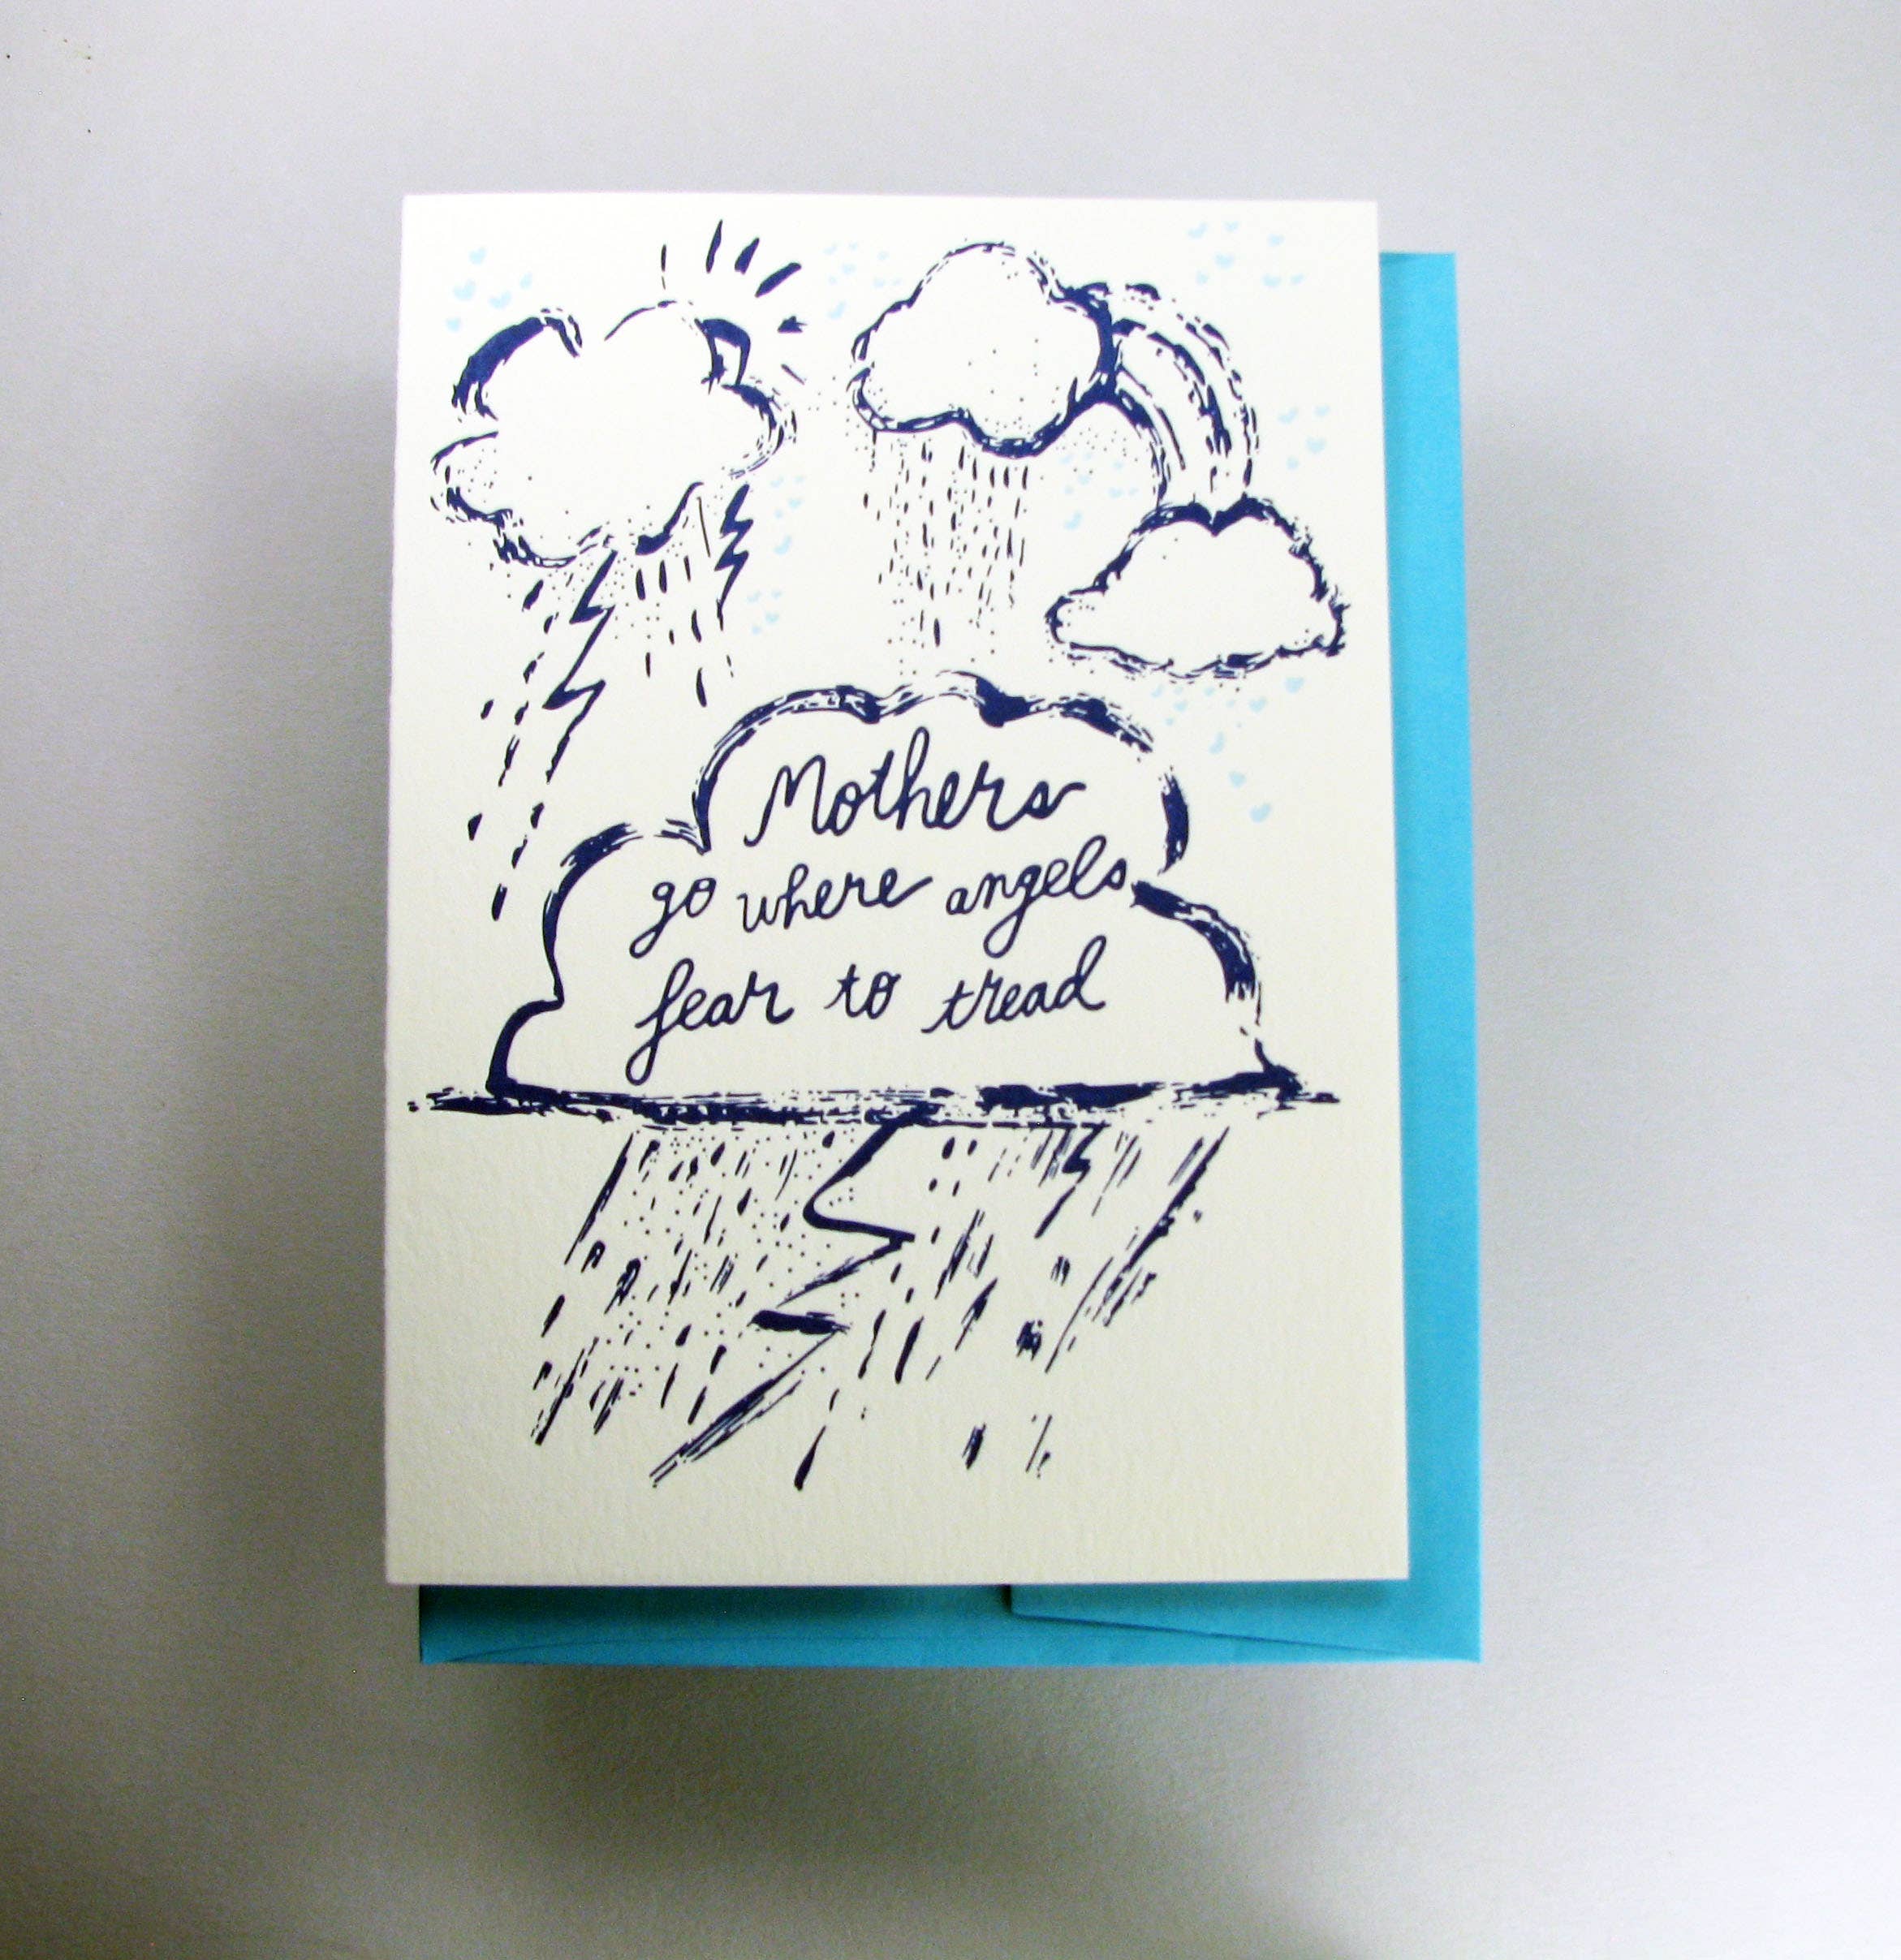 Mothers
go where angels
fear to tread